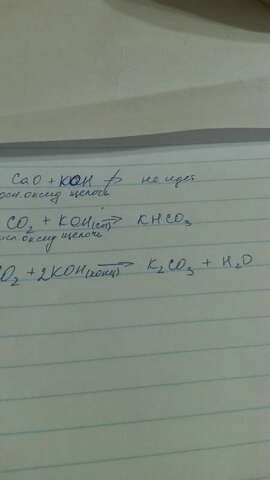 CaO + KOH ↛ не идет
осн. оксид щелочь
CO₂ + KOH → KHCO₃
кисл. оксид щелочь
CO₂ + 2KOH → K₂CO₃ + H₂O